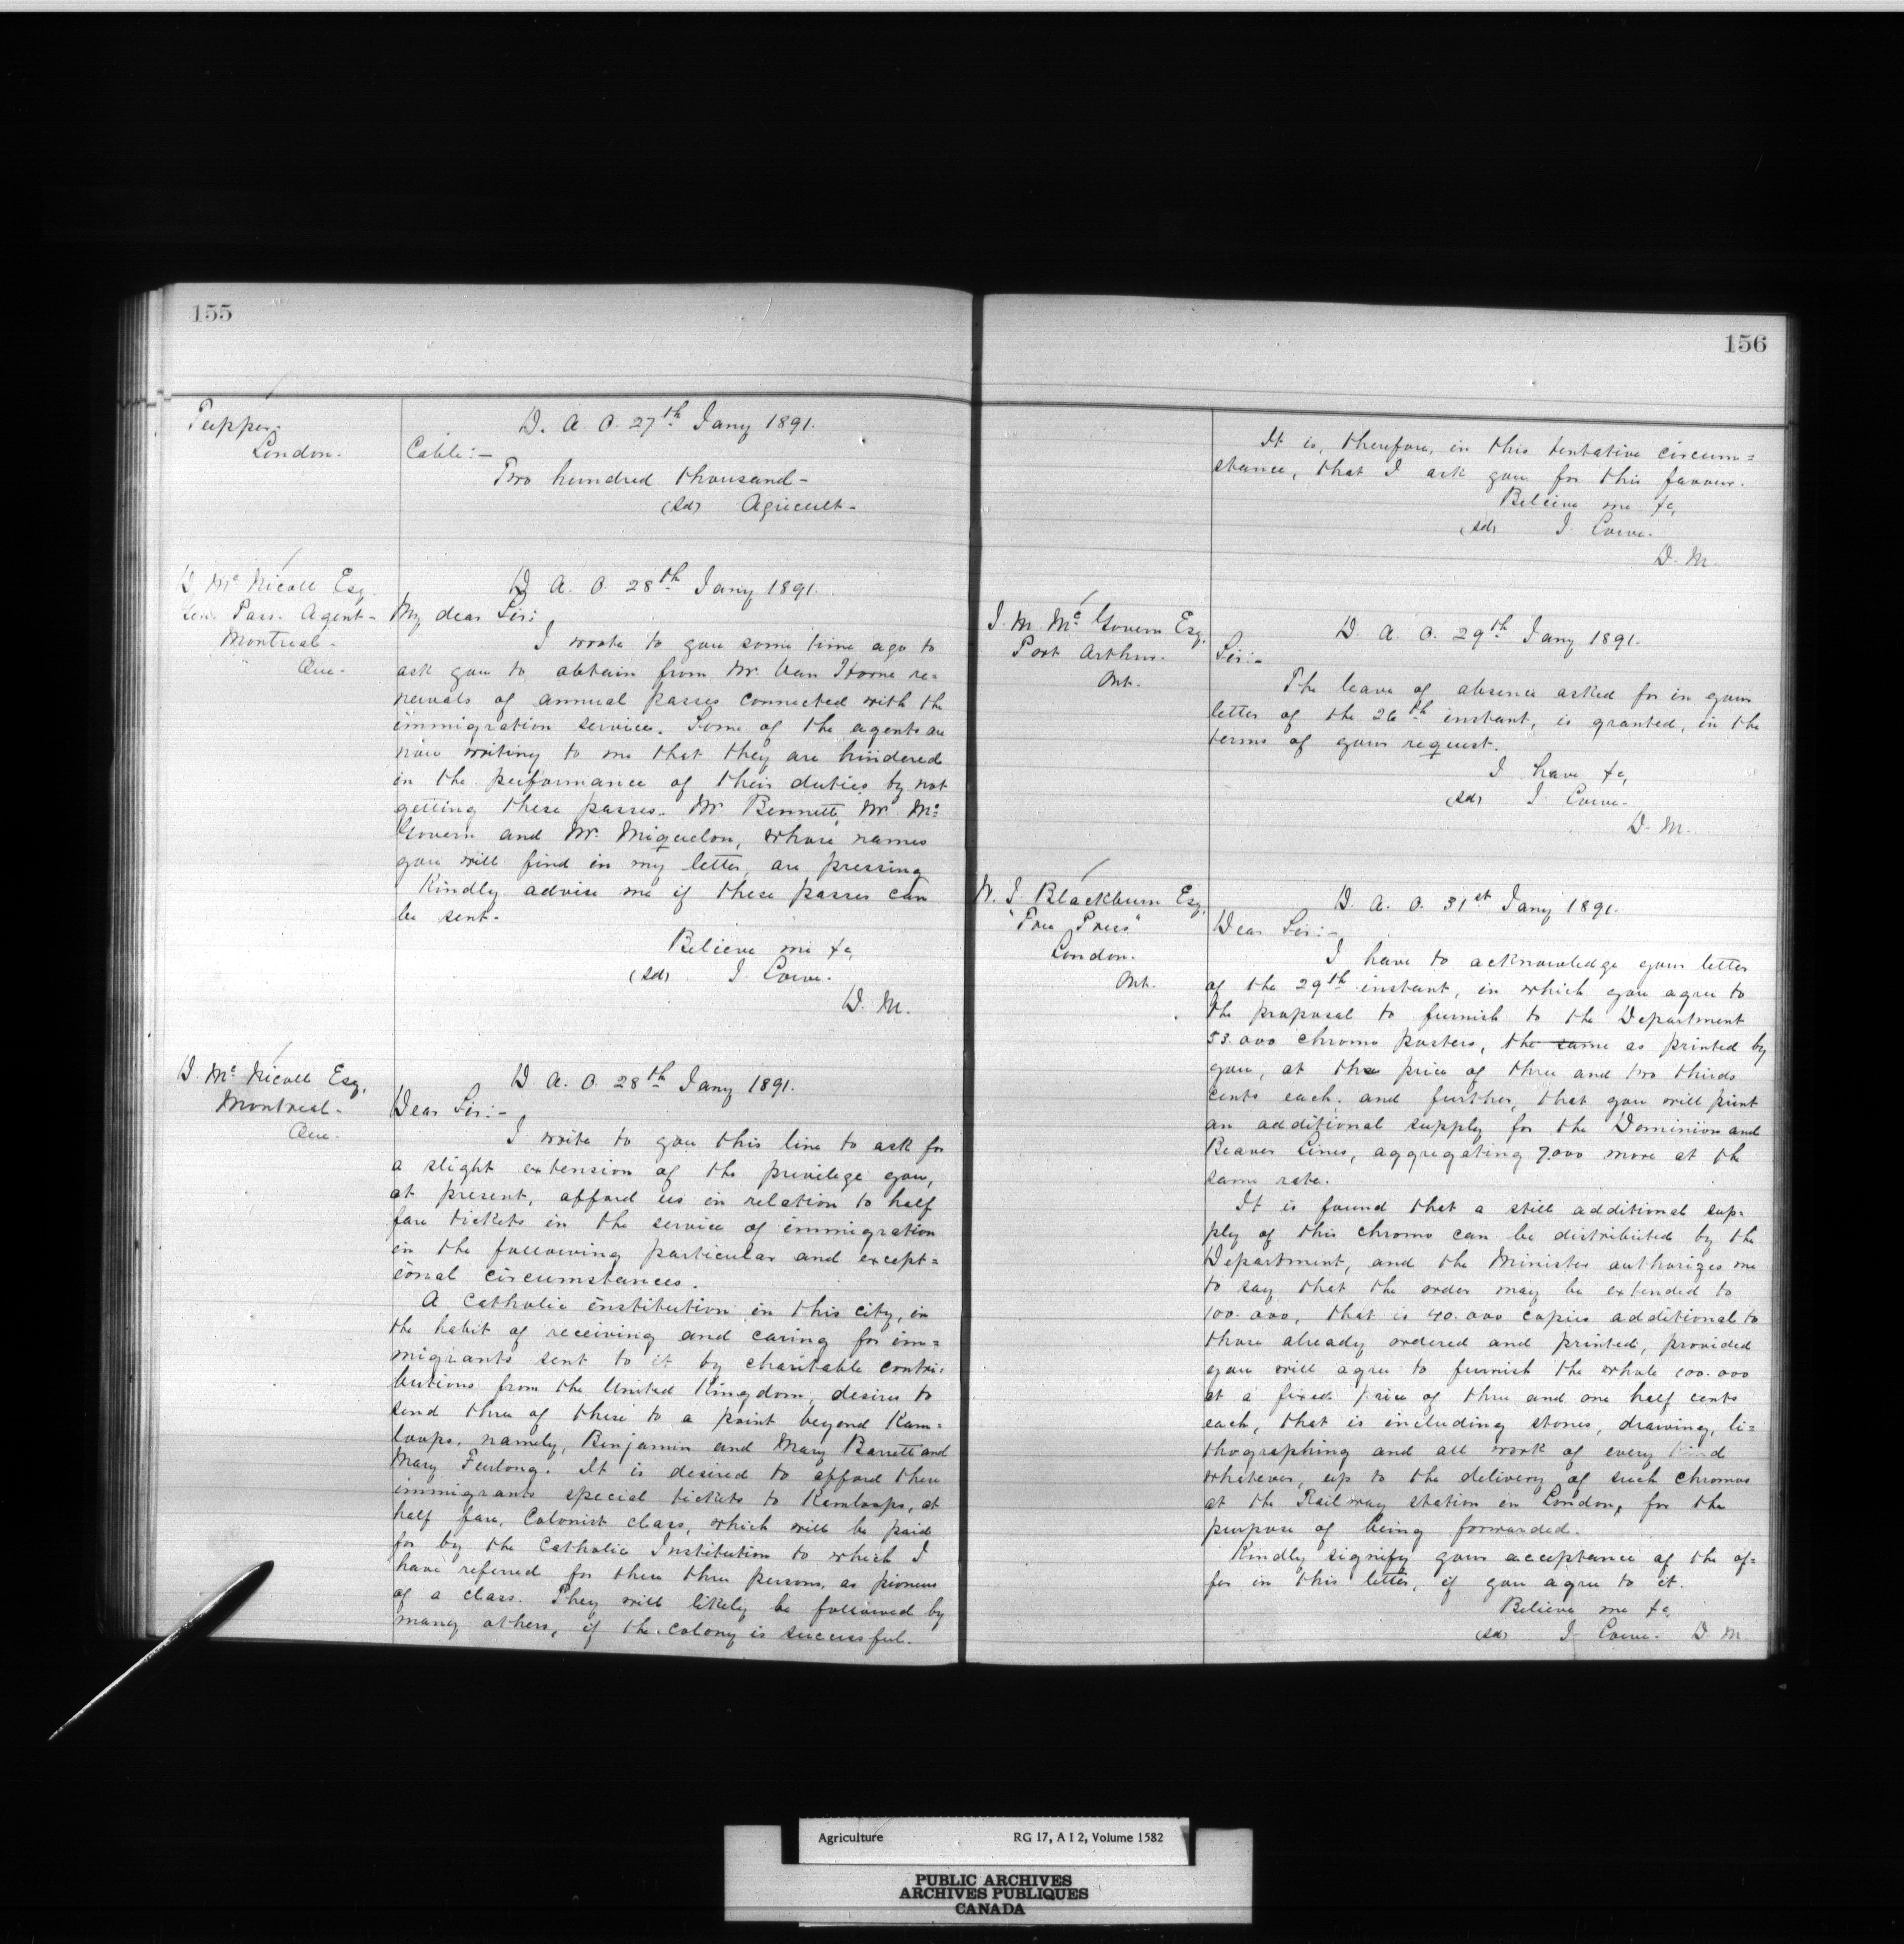 155
Tupper.
London.
D. A. O. 27th Jany 1891.
Cable:-
Two hundred thousand-
(sd) Agricult-
D McNicoll Esq.
Gen. Pass. Agent-
Montreal-
Que-
D. A. O. 28th Jany 1891.
My dear Sir:
I wrote to you some time ago to
ask you to obtain from Mr. Van Horne re=
newals of annual passes connected with the
immigration service. Some of the agents are
now writing to me that they are hindered
in the performance of their duties by not
getting these passes. Mr Bennett, Mr. Mc=
Govern and Mr. Miquelon, whose names
you will find in my letter, are pressing
Kindly advise me if these passes can
be sent-
Believe me &c,
(sd) J. Lowe.
D. M.
D. McNicoll Esq.
Montreal-
Que-
D. A. O. 28th Jany 1891.
Dear Sir:-
I write to you this line to ask for
a slight extension of the privilege you,
at present, afford us in relation to half
fare tickets in the service of immigration
in the following particular and except=
ional circumstances.
A Catholic institution in this city, in
the habit of receiving and caring for im=
migrants sent to it by charitable contri=
butions from the United Kingdom, desires to
send three of these to a point beyond Kam=
loops, namely, Benjamin and Mary Barrett and
Mary Furlong. It is desired to afford these
immigrants special tickets to Kamloops, at
half fare, Colonist class, which will be paid
for by the Catholic Institution to which I
have referred for these three persons, as pioneers
of a class. They will likely be followed by
many others, if the colony is successful.
156
It is, therefore, in this tentative circum=
stance, that I ask you for this favour.
Believe me &c,
(sd) J. Lowe.
D. M.
J. M. McGovern Esq.
Port Arthur.
Ont.
D. A. O. 29th Jany 1891.
Sir:-
The leave of absence asked for in your
letter of the 26th instant, is granted, in the
terms of your request.
I have &c,
(sd) J. Lowe-
D. M.
W. J. Blackburn Esq.
"Free Press"
London.
Ont.
D. A. O. 31st Jany 1891.
Dear Sir:-
I have to acknowledge your letter
of the 29th instant, in which you agree to
the proposal to furnish to the Department
53.000 chromo posters, the same as printed by
you, at the price of three and two thirds
cents each, and further, that you will print
an additional supply for the Dominion and
Beaver Lines, aggregating 7.000 more at the
same rate.
It is found that a still additional sup=
ply of this chromo can be distributed by the
Department, and the Minister authorizes me
to say that the order may be extended to
100.000, that is 40.000 copies additional to
those already ordered and printed, provided
you will agree to furnish the whole 100.000
at a fixed price of three and one half cents
each, that is including stones, drawing, li=
thographing and all work of every kind
whatever, up to the delivery of such chromos
at the Railway station in London, for the
purpose of being forwarded.
Kindly signify your acceptance of the of=
fer in this letter, if you agree to it.
Believe me &c,
(sd) J. Lowe. D. M.
Agriculture RG 17, A I 2, Volume 1582
PUBLIC ARCHIVES
ARCHIVES PUBLIQUES
CANADA